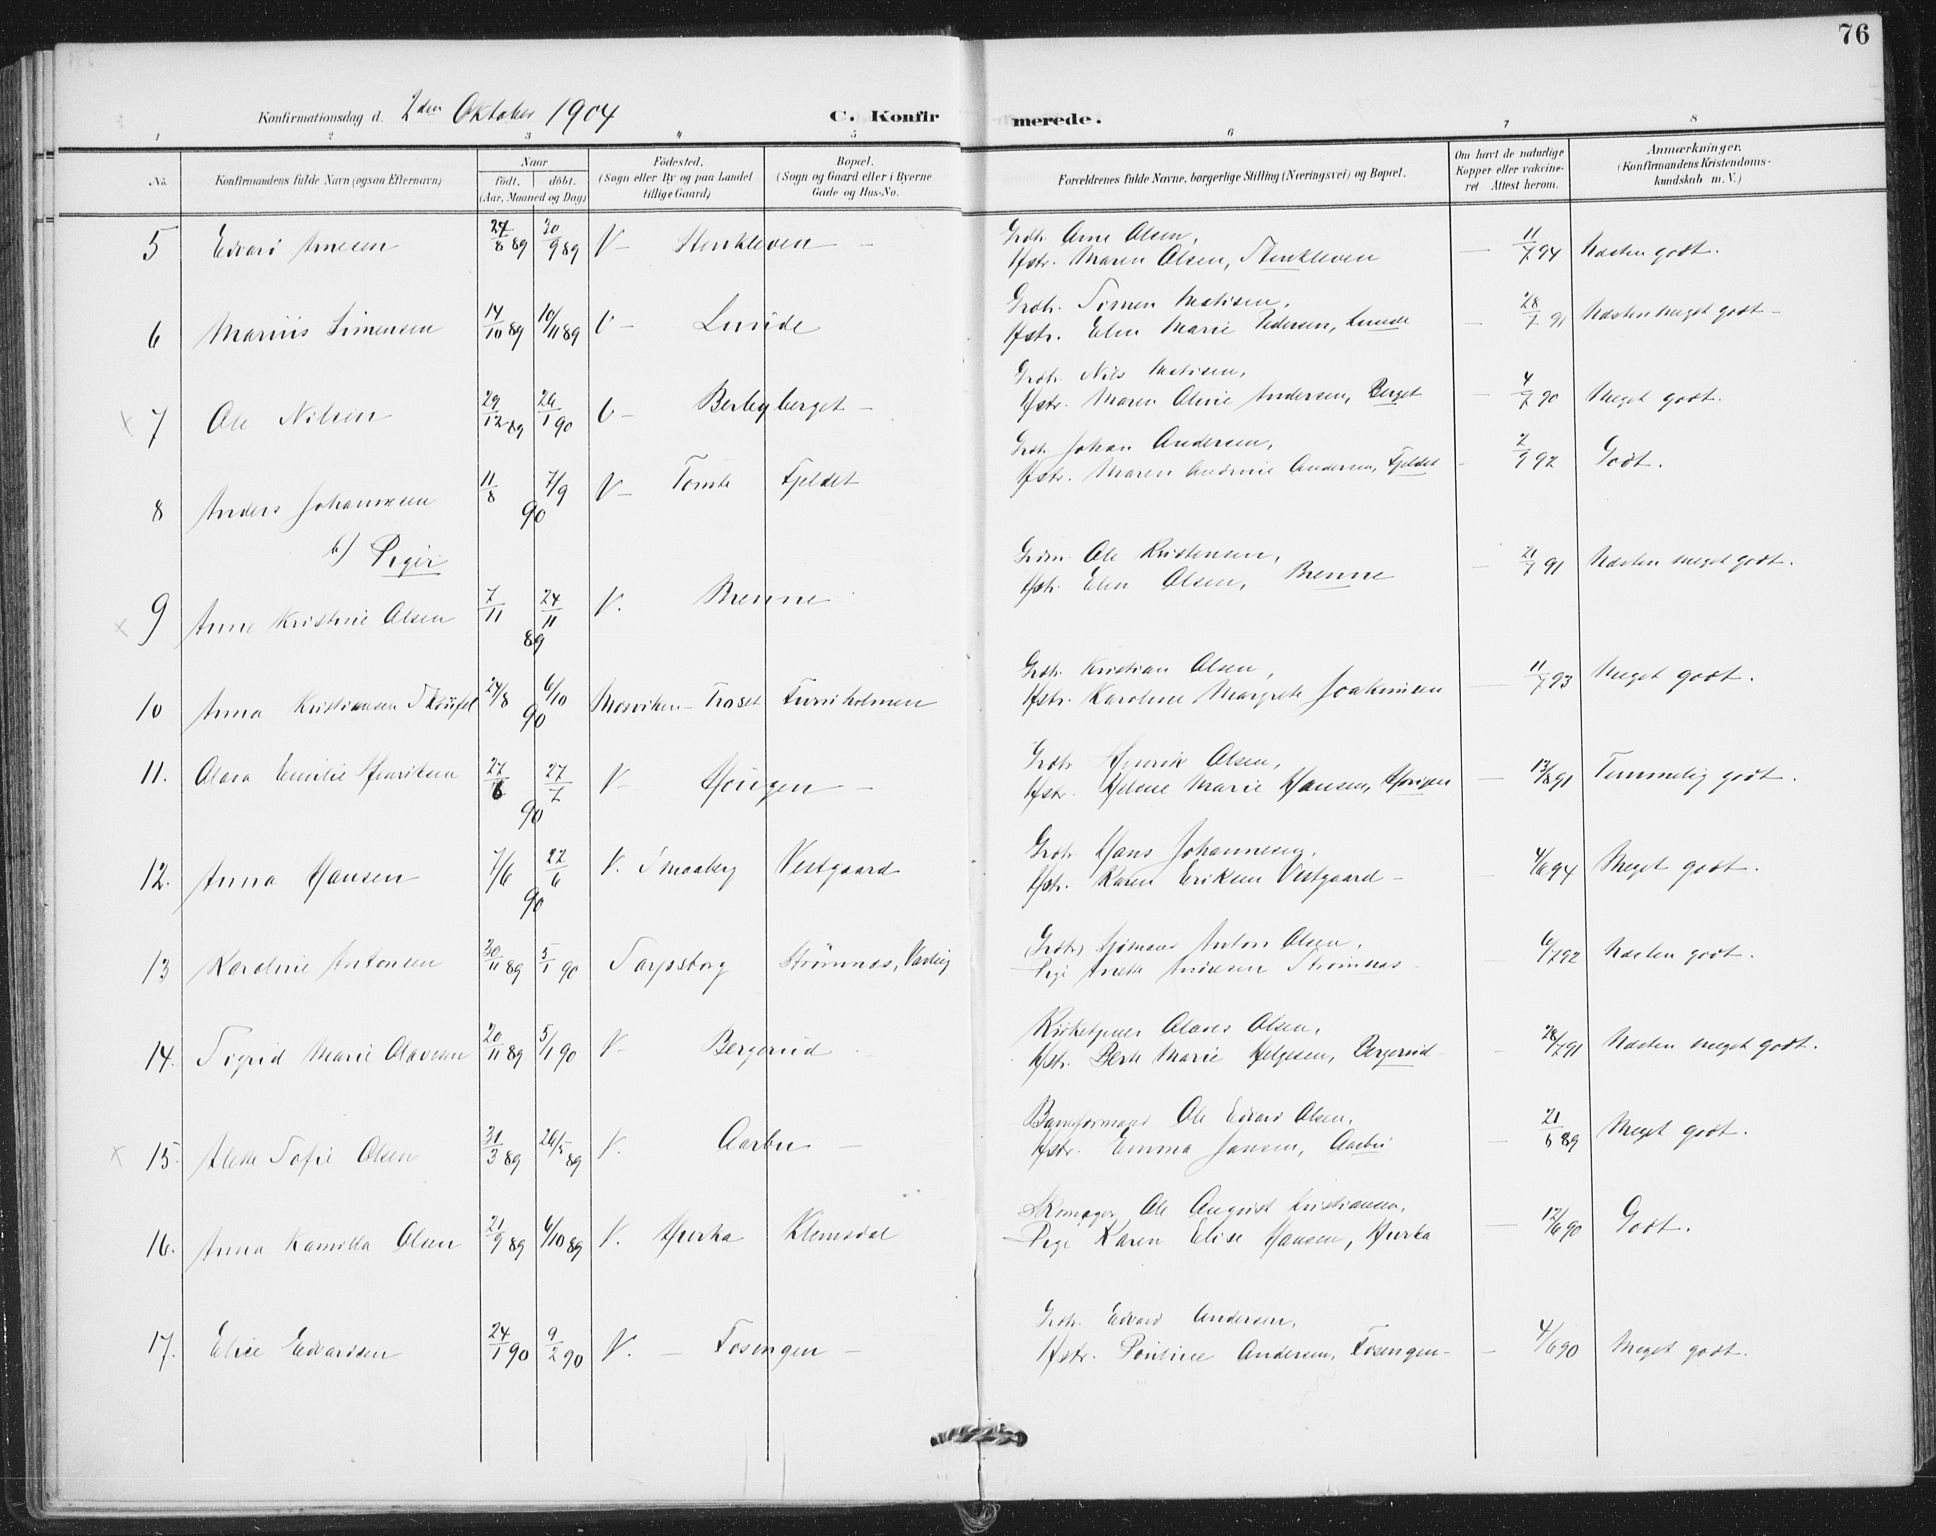 76
Konfirmationsdag d. 2den Oktober 1904 C. Konfirmerede.
1 2 3 4 5 6 7 8
No.
Konfirmandens fulde Navn (ogsaa Efternavn)
Naar
født, døbt.
(Aar, Maaned og Dag)
Fødested.
(Sogn eller By og paa Landet
tillige Gaard)
Bopæl.
(Sogn og Gaard eller i Byerne
Gade og Hus-No.
Forældrenes fulde Navne, borgerlige Stilling (Næringsvei) og Bopæl.
Om havt de naturlige
Kopper eller vakcine-
ret. Attest herom.
Anmærkninger.
(Konfirmandens Kristendoms-
kundskab m. V.)
5 Edvard Arnesen 24/8 89 30/9 89 V – Stenkleven –
Grdbr. Arne Olsen,
Hstr. Maren Olsen, Stenkleven – 11/7 94 Næsten godt.
6 Marius Simensen 14/10 89 10/11 89 V – Lunde
Grdbr. Simen Matisen,
Hstr. Elen Marie Pedersen, Lunde – 28/7 91 Næsten meget godt –
x 7 Ole Nilsen 29/12 89 26/1 90 V – Berbyberget –
Grdbr. Nils Matisen,
Hstr. Maren Oline Andersen, Berget – 4/7 90 Meget godt.
8 Anders Johannesen 11/8 7/9 90 V – Tomte Fjeldet
Grdbr. Johan Andersen,
Hstr. Maren Andrine Andersen, Fjeldet – 2/9 92 Godt.
b) Piger
x 9 Anne Kristine Olsen 7/11 24/11 89 V. Brenne
Ole Kristensen,
Hstr. Elen Olsen, Brenne – 21/7 91 Næsten meget godt.
10 Anna Kristiansen 24/8 6/10 90 Mosviken – Troset Furuholmen
Grdbr. Kristian Olsen,
Hstr. Karoline Margrete Joakimsen – 11/7 93 Meget godt.
11. Olava Emilie Henriksen 27/6 27/7 90 V – Høugen –
Grdbr. Henrik Olsen,
Hstr. Helene Marie Hansen, Høugen – 13/8 91 Temmelig godt.
12. Anna Hansen 7/6 22/6 90 V. Smaaberg Vestgaard
Grdbr. Hans Johannesen,
Hstr. Karen Eriksen Vestgaard – – 4/6 94 Meget godt.
13 Karoline Antonsen 30/11 89 5/1 90 Sarpsborg Strømnes, Varteig
Sjømand Anton Olsen,
Pige Anette Andresen Strømnes – – 6/7 92 Næsten godt.
14. Sigrid Marie Olavesen 20/11 89 5/1 90 V – Bergerud –
Kirketjener Olaves Olsen,
Hstr. Berte Marie Helgesen, Bergerud – – 28/7 91 Næsten meget godt.
x 15. Alette Sofie Olsen 31/3 89 26/5 89 V. Aarbu –
Baneformand Ole Edvard Olsen,
Hstr. Emma Jansen, Aarbu – 21/6 89 Meget godt.
16. Anna Kamilla Olsen 21/9 89 6/10 89 V. Hurka Klemsdal
Skomager Ole August Kristiansen,
Pige Karen Elise Hansen, Hurka – 12/6 90 Godt.
17. Elise Edvardsen 24/1 90 9/2 90 V. – Tosengen –
Grdbr. Edvard Andersen,
Hstr. Pouline Andersen, Tosengen – – 4/6 90 Meget godt.